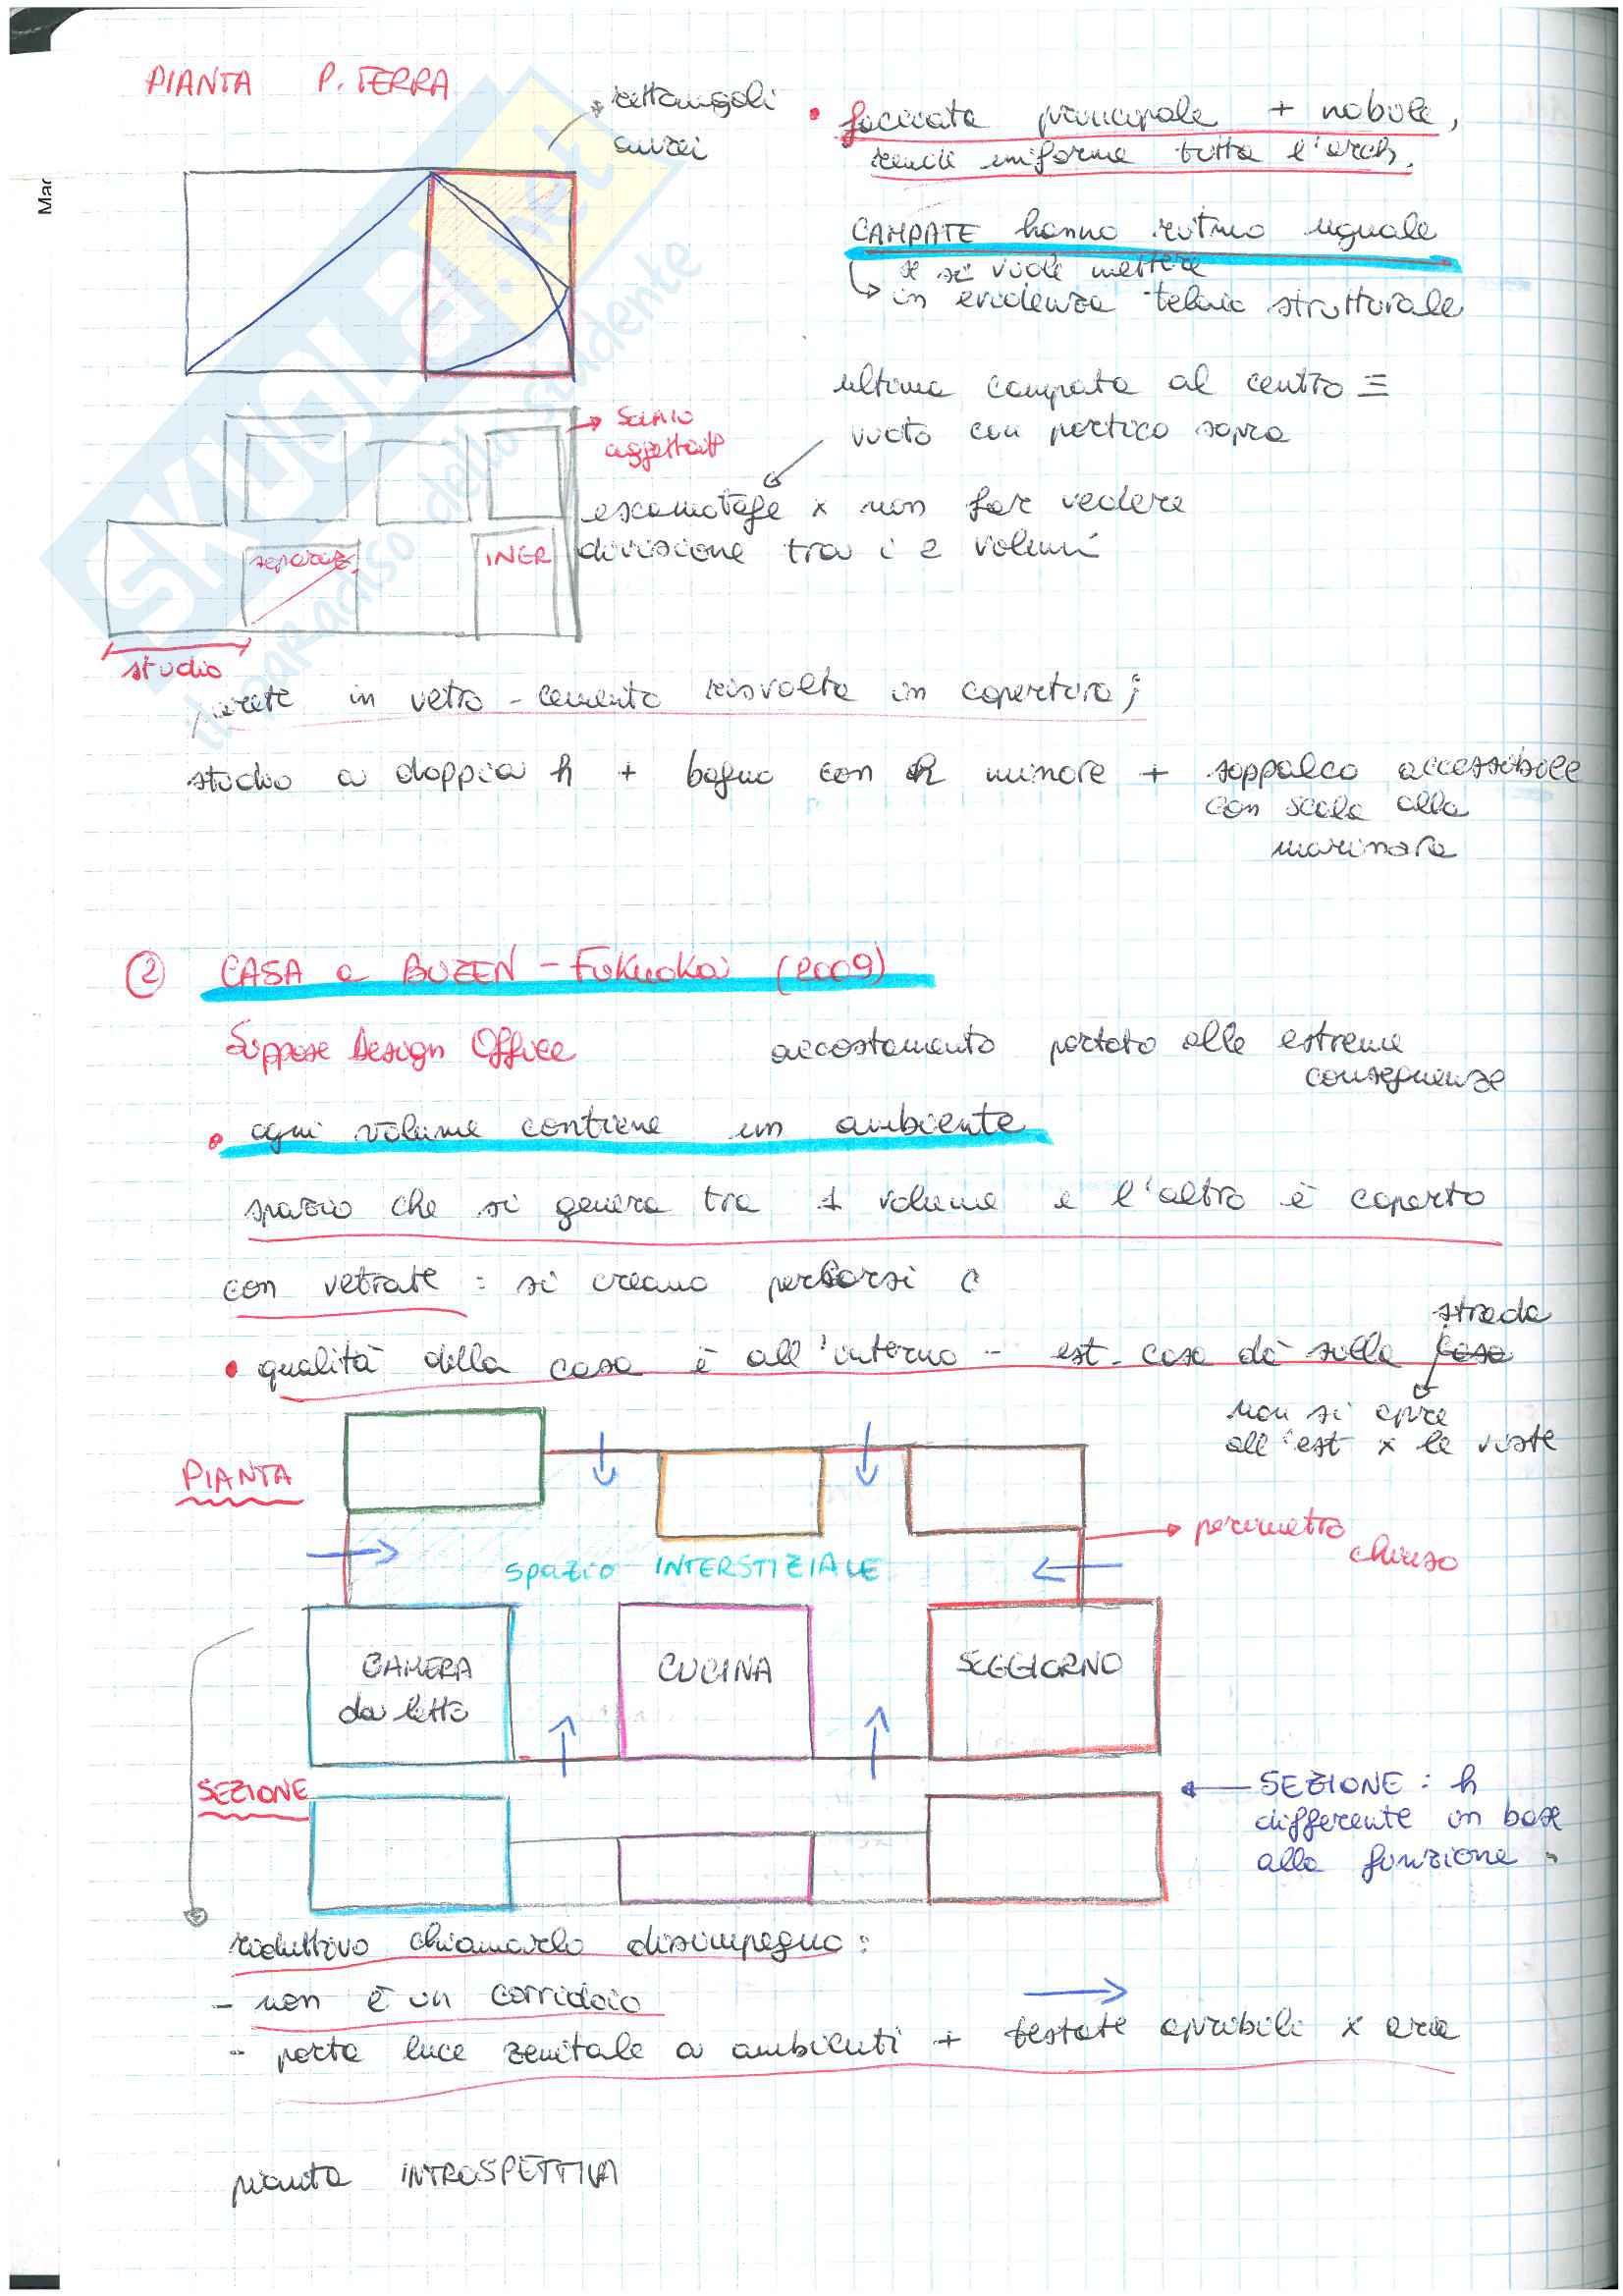 PIANTA P. TERRA
rettangoli
aurei
• facciata principale + nobile,
rende uniforme tutta l'arch.
CAMPATE hanno ritmo uguale
se si vuole mettere
in evidenza telaio strutturale
ultima campata al centro =
vuoto con portico sopra
escamotage x non far vedere
divisione tra i 2 volumi
aggettant
separaz.
INGR
studio
parete in vetro - cemento risvolta in copertura;
studio a doppia h + bagno con h minore + soppalco accessibile
con scala alla
marinara
SKUOLA.net
il paradiso dello studente
Mar
② CASA a BUZEN - Fukuoka (2009)
Suppose Design Office
accostamento portato alle estreme
conseguenze
• ogni volume contiene un ambiente
spazio che si genera tra 1 volume e l'altro è coperto
con vetrate : si creano percorsi c
strada
• qualità della casa è all'interno - est. casa dà sulla casa
non si apre
all'est x le viste
PIANTA
perimetro
chiuso
spazio INTERSTIZIALE
CAMERA
da letto
CUCINA
SOGGIORNO
SEZIONE
SEZIONE : h
differente in base
alla funzione
riduttivo chiamarlo disimpegno :
- non è un corridoio
- porta luce zenitale a ambienti + testate apribili x aria
pianta INTROSPETTIVA